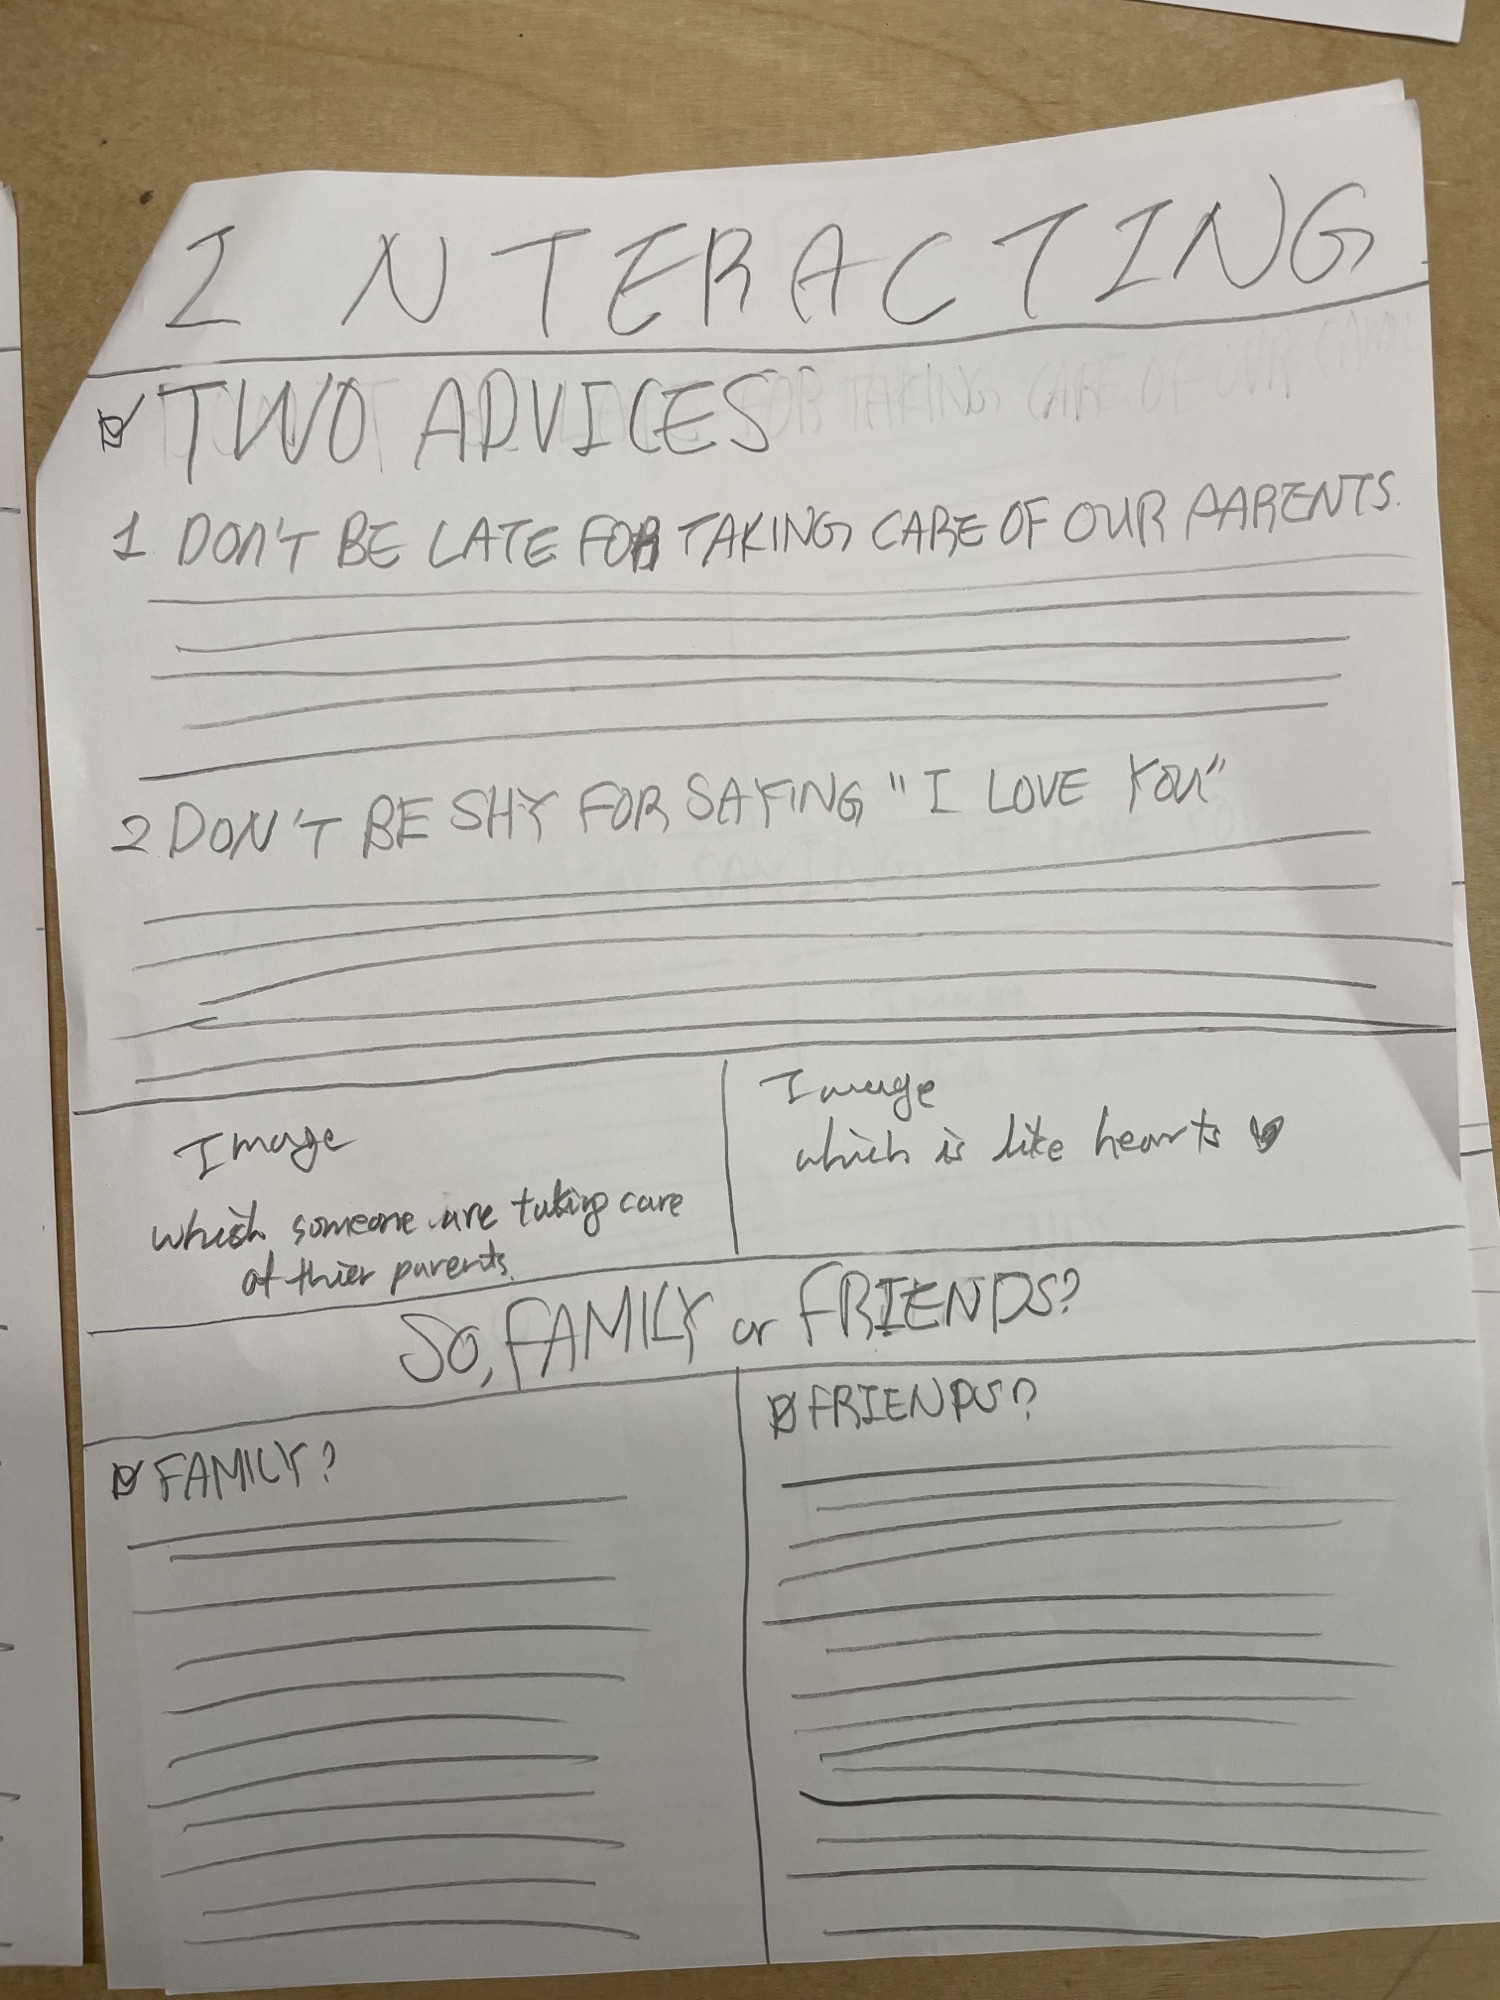 INTERACTING
TWO ADVICES
1 DON'T BE LATE FOR TAKING CARE OF OUR PARENTS.
2 DON'T BE SHY FOR SAYING "I LOVE YOU"
Image
which someone are taking care
of thier parents.
Image
which is like hearts
So, FAMILY or FRIENDS?
FAMILY?
FRIENDS?